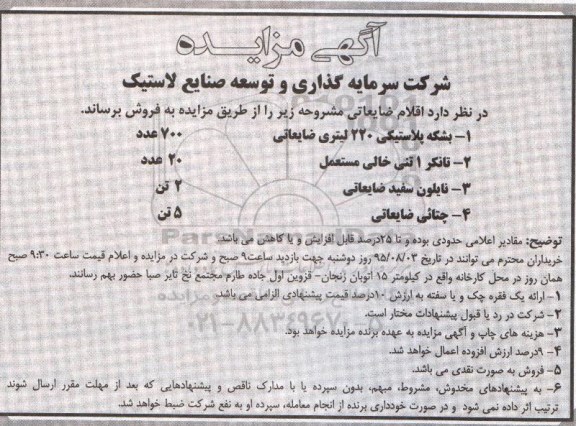 آگهی مزایده
شرکت سرمایه گذاری و توسعه صنایع لاستیک
در نظر دارد اقلام ضایعاتی مشروحه زیر را از طریق مزایده به فروش برساند.
۱- بشکه پلاستیکی ۲۲۰ لیتری ضایعاتی ۷۰۰ عدد
۲- تانکر ۱ تنی خالی مستعمل ۲۰ عدد
۳- نایلون سفید ضایعاتی ۲ تن
۴- چتائی ضایعاتی ۵ تن
توضیح: مقادیر اعلامی حدودی بوده و تا ۲۵درصد قابل افزایش و یا کاهش می باشد.
خریداران محترم می توانند در تاریخ ۹۵/۰۸/۰۳ روز دوشنبه جهت بازدید ساعت۹ صبح و شرکت در مزایده و اعلام قیمت ساعت ۹:۳۰ صبح
همان روز در محل کارخانه واقع در کیلومتر ۱۵ اتوبان زنجان- قزوین اول جاده طارم مجتمع نخ تایر صبا حضور بهم رسانند.
۱- ارائه یک فقره چک و یا سفته به ارزش ۱۰درصد قیمت پیشنهادی الزامی می باشد.
۲- شرکت در رد یا قبول پیشنهادات مختار است.
۳- هزینه های چاپ و آگهی مزایده به عهده برنده مزایده خواهد بود.
۴- ۹درصد ارزش افزوده اعمال خواهد شد.
۵- فروش به صورت نقدی می باشد.
۶- به پیشنهادهای مخدوش، مشروط، مبهم، بدون سپرده یا با مدارک ناقص و پیشنهادهایی که بعد از مهلت مقرر ارسال شوند
ترتیب اثر داده نمی شود و در صورت خودداری برنده از انجام معامله، سپرده او به نفع شرکت ضبط خواهد شد.
ParsNamadData
۰۲۱-۸۸۳۴۹۶۷۰